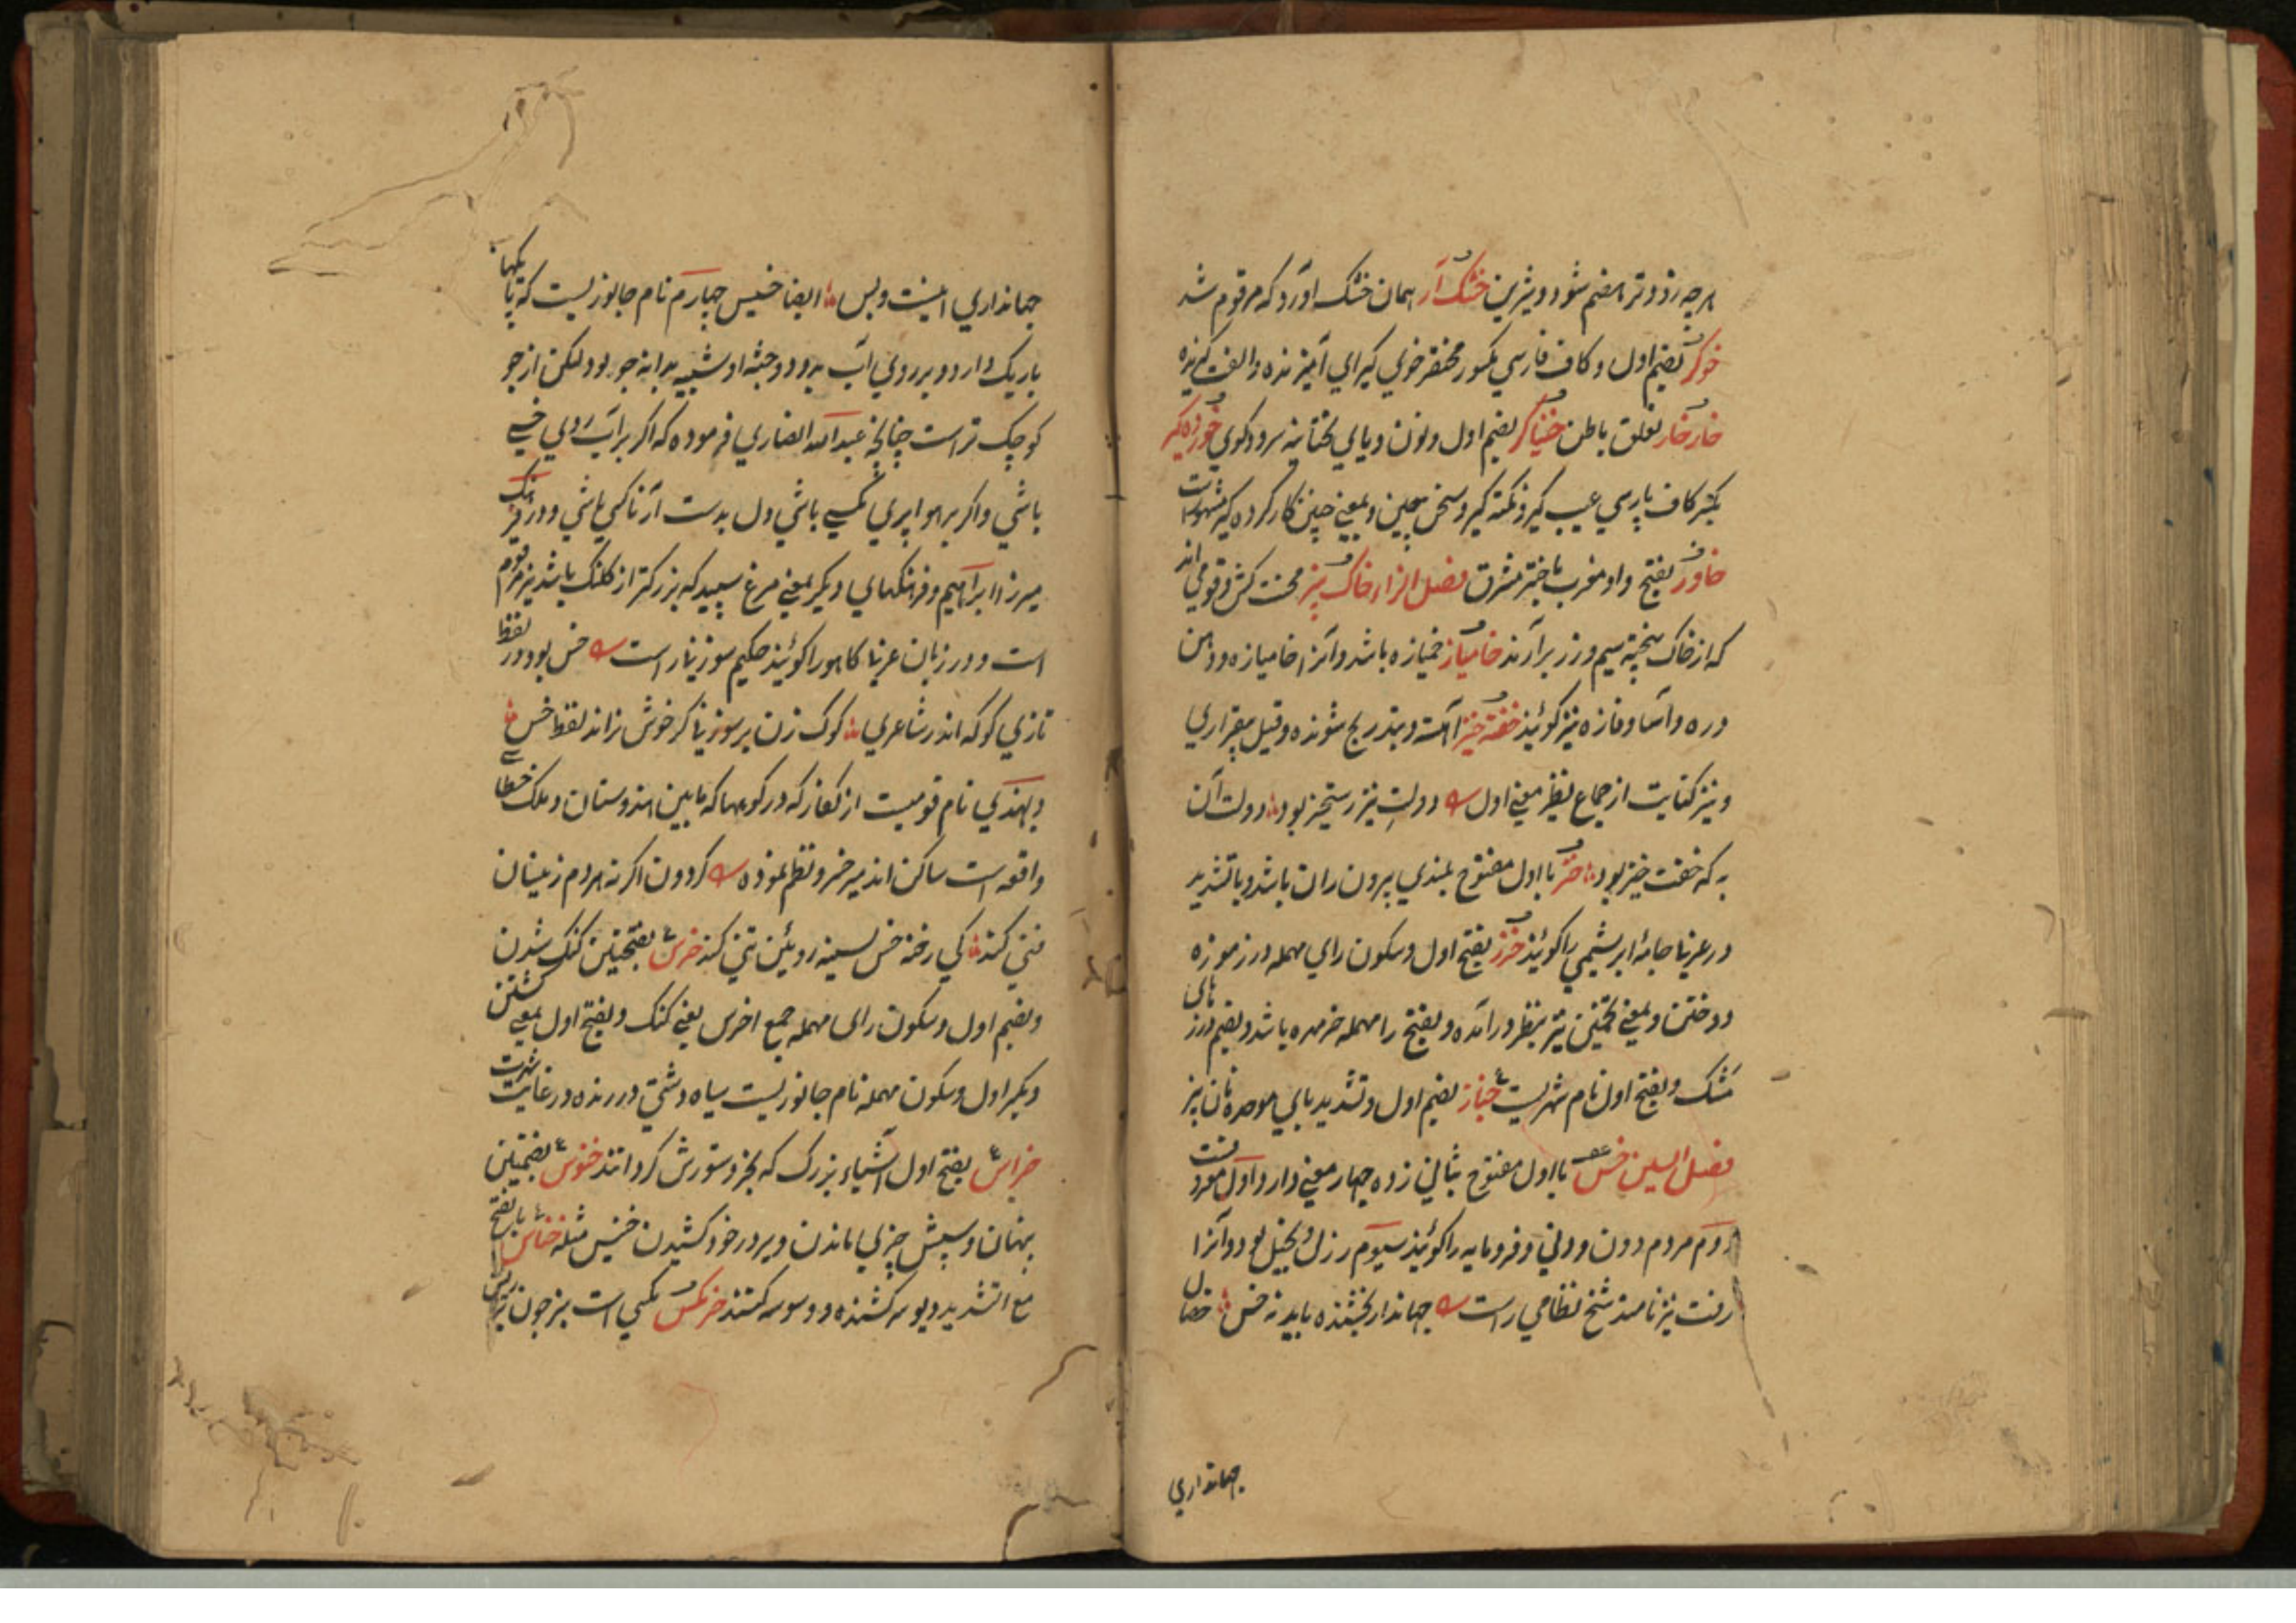 هرچه زودتر هضم شود و شیرین خشک آر همان خشک اورد که مرقوم شد
خوگر بضم اول و کاف فارسی مکسور مختصر خوی گیرای آمیزنده و الفت گیرنده
خارخار تعلق باطن خنیاگر بضم اول و نون و یای تحتانیه سرود گوی خورده گیر
بکسر کاف پارسی عیب گیر و نکته گیر و سخن چین و بمعنی چنین کار کرده که مشهور است
خاور بفتح واو مغرب باختر مشرق فصل الزاء خاک بیز محنت کش و قومی اند
که از خاک بیخته سیم و زر برآرند خامیاز خمیازه باشد و آنرا خامیازه و دهن
دره و آسا و فازه نیز گویند خفته خیز آهسته و بتدریج شونده و قیل بیقراری
و نیز کنایت از جماع نظیر معنی اول دولت تیز رستخیز بود دولت آن
به که خفت خیز بود خز با اول مفتوح بلندی بیرون ران باشد و باتشدید
در عربی جامهٔ ابریشمی را گویند خرز بفتح اول و سکون رای مهمله درز موزه
دوختن و بمعنی تحتین نیز بنظر درآمده و بفتح را مهمله خرمهره باشد و بضم درزهای
مشک و بفتح اول نام شهریست خباز بضم اول و تشدید بای موحده نان پز
فصل السین خس با اول مفتوح بثانی زده چهار معنی دارد اول معروفست
دوم مردم دون و دنی و فرومایه را گویند سیوم رزل و بخیل بود و آنرا
رفت نیز نامند شیخ نظامی راست جهاندار بخشنده باید نه خس خصال
جهانداری
جهانداری اینست و بس ایضا خسیس چهارم نام جانوریست که پایکهای
باریک دارد و بر روی آب بدود و جثه او شبیه بدانه جو بود لیکن از جو
کوچک تر است چنانچه عبدالله انصاری فرموده که اگر بر آب روی خسے
باشی و اگر بر هوا پری مگسے باشی دل بدست آر تا کسی باشی و در فرهنگ
میرزا ابراهیم و فرهنگهای دیگر بمعنی مرغ سپید که بزرگتر از کلنک باشد نیز مرقوم
است و در زبان عربی کاهو را گویند حکیم سوزنی راست خس بود در لفظ
تازی کوک اندر شاعری کوک زن بر سوزنی گر خوش نراند لفظ خس
و بهندی نام قومیست از کفار که در کوهها که مابین هندوستان و ملک خطا
واقعه است ساکن اند میر خسرو نظم نموده گردون اگر نه مردم زمینان
فنی کند کی رخنه خس بسینه روئین تنی کند خرس بفتحتین کنک شدن
و بضم اول و سکون رای مهمله جمع اخرس یعنی کنک و بفتح اول بمعنی
و بکسر اول و سکون مهمله نام جانوریست سیاه دشتی درنده در غایت شهرت
خراس بفتح اول آسیاء بزرگ که بخر و ستورش گردانند خنوس بضمتین
پنهان و سپش چیزی ماندن و بر در خود کشیدن خنیس مثله خناس بالفتح
مع التشدید دیو سرکشنده و وسوسه کننده خرمگس مگسی است سبز چون بر ریش